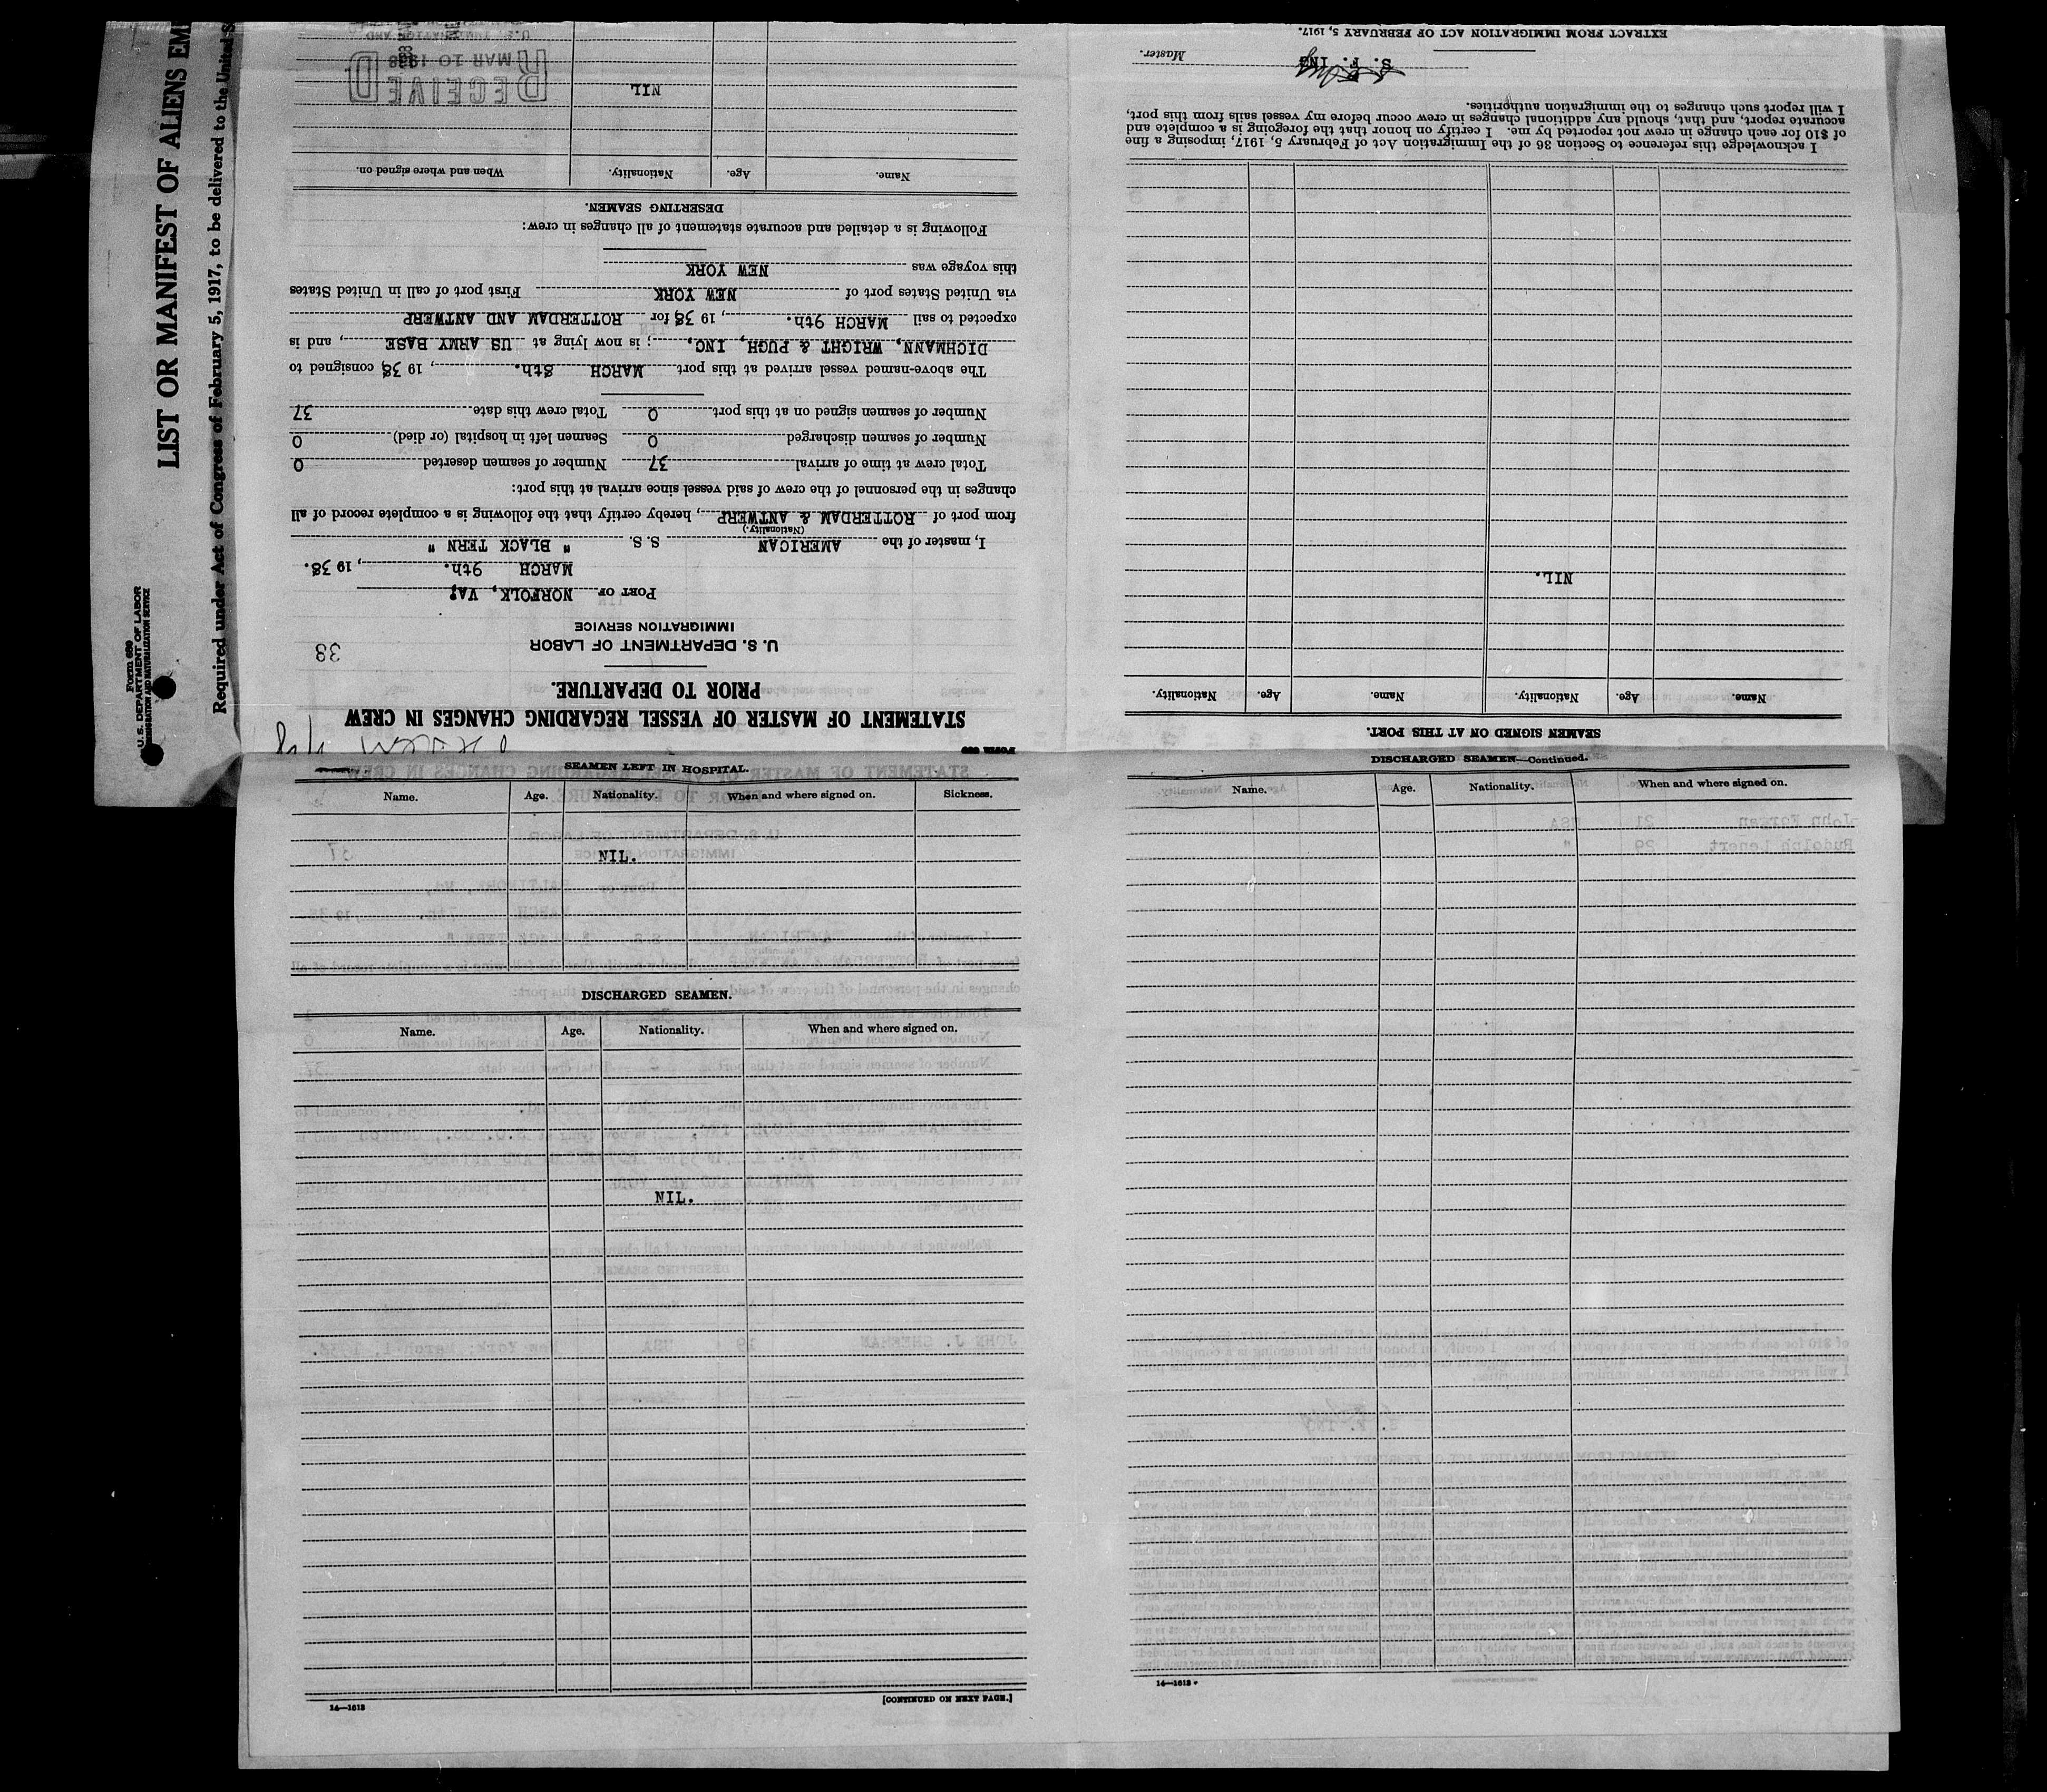 LIST OR MANIFEST OF ALIENS EM
Required under Act of Congress of February 5, 1917, to be delivered to the United S
Form 680
U. S. DEPARTMENT OF LABOR
IMMIGRATION AND NATURALIZATION SERVICE
STATEMENT OF MASTER OF VESSEL REGARDING CHANGES IN CREW
PRIOR TO DEPARTURE.
U. S. DEPARTMENT OF LABOR
IMMIGRATION SERVICE
38
PORT OF NORFOLK, VA;
MARCH 9th. , 19 38.
I, master of the AMERICAN S. S. " BLACK TERN "
(Nationality.)
from port of ROTTERDAM & ANTWERP , hereby certify that the following is a complete record of all
changes in the personnel of the crew of said vessel since arrival at this port:
Total crew at time of arrival 37 Number of seamen deserted 0
Number of seamen discharged 0 Seamen left in hospital (or died) 0
Number of seamen signed on at this port 0 Total crew this date 37
The above-named vessel arrived at this port MARCH 8th. , 19 38 consigned to
DICHMANN, WRIGHT & PUGH, INC, ; is now lying at US ARMY BASE , and is
expected to sail MARCH 9th. , 19 38 for ROTTERDAM AND ANTWERP
via United States port of NEW YORK First port of call in United States
this voyage was NEW YORK
Following is a detailed and accurate statement of all changes in crew:
DESERTING SEAMEN.
Name. Age. Nationality. When and where signed on.
NIL
RECEIVED
MAR 10 1938
SEAMEN LEFT IN HOSPITAL.
Name. Age. Nationality. When and where signed on. Sickness.
NIL.
DISCHARGED SEAMEN.
Name. Age. Nationality. When and where signed on.
NIL.
14—1613
[CONTINUED ON NEXT PAGE.]
DISCHARGED SEAMEN—Continued.
Name. Age. Nationality. When and where signed on.
14—1613
SEAMEN SIGNED ON AT THIS PORT.
Name. Age. Nationality. Name. Age. Nationality.
NIL.
I acknowledge this reference to Section 36 of the Immigration Act of February 5, 1917, imposing a fine
of $10 for each change in crew not reported by me. I certify on honor that the foregoing is a complete and
accurate report, and that, should any additional changes in crew occur before my vessel sails from this port,
I will report such changes to the immigration authorities.
S. F. ING
Master.
EXTRACT FROM IMMIGRATION ACT OF FEBRUARY 5, 1917.